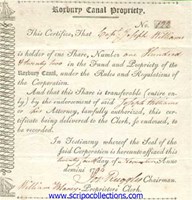 Roxbury Canal Propriety.
No. 122
This Certifies, That Capt. Joseph Williams
is holder of one Share, Number one Hundred
& twenty two in the Fund and Propriety of the
Roxbury Canal, under the Rules and Regulations
of the Corporation.
And this Share is transferable (entire
only) by the endorsement of said Joseph Williams
or his Attorney, lawfully authorized, this
certificate being delivered to the Clerk, so endorsed,
to be recorded.
In Testimony whereof the Seal of the
said Corporation is hereunto affixed this
twenty day of Anno
domini 179
Chairman
William Blaney Proprietors Clerk.
www.scripocollections.com